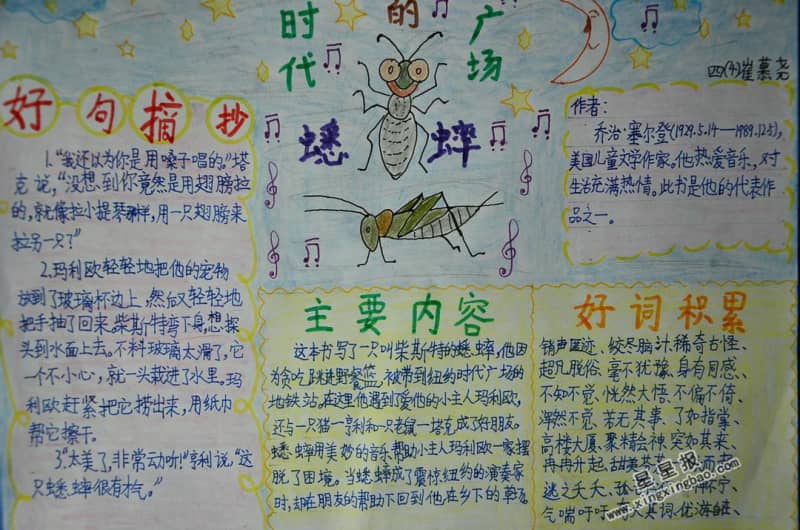 时代的广场
蟋蟀
四(4)崔慕尧
好句摘抄
1.“我还以为你是用嗓子唱的,”塔
克说,“没想到你竟然是用翅膀拉
的,就像拉小提琴那样,用一只翅膀来
拉另一只?”
2.玛利欧轻轻地把他的宠物
放到了玻璃杯边上,然后又轻轻地
把手抽了回来,柴斯特弯下身,想探
头到水面上去。不料玻璃太滑了,它
一个不小心,就一头栽进了水里。玛
利欧赶紧把它捞出来,用纸巾
帮它擦干。
3.“太美了,非常动听!”亨利说,“这
只蟋蟀很有才气。”
作者:
乔治·塞尔登(1929.5.14—1989.12.5),
美国儿童文学作家,他热爱音乐,对
生活充满热情。此书是他的代表作
品之一。
主要内容
这本书写了一只叫柴斯特的蟋蟀,他因
为贪吃跳进野餐篮,被带到纽约时代广场的
地铁站。在这里他遇到爱他的小主人玛利欧,
还与一只猫—亨利和一只老鼠—塔克成了好朋友。
蟋蟀用美妙的音乐帮助小主人玛利欧一家摆
脱了困境。当蟋蟀成了震惊纽约的演奏家
时,却在朋友的帮助下回到他在乡下的草场
好词积累
销声匿迹、绞尽脑汁、稀奇古怪、
超凡脱俗、毫不犹豫、身有同感、
不知不觉、恍然大悟、不偏不倚、
浑然不觉、若无其事、了如指掌、
高楼大厦、聚精会神、突如其来、
冉冉升起、甜美
逃之夭夭、
气喘吁吁、
星星报
www.xingxingbao.com